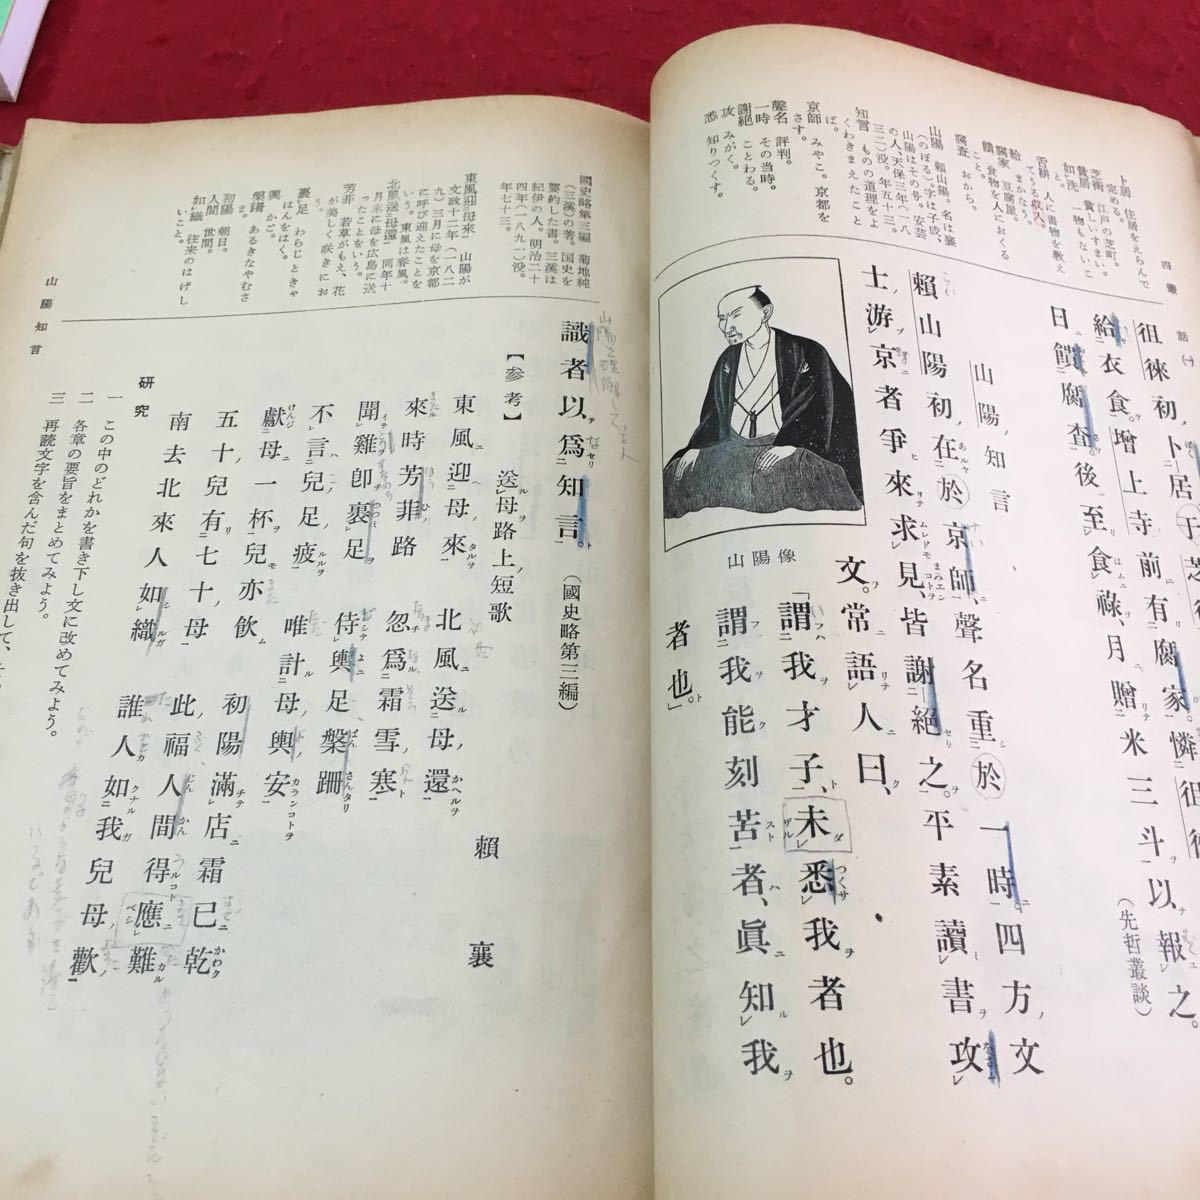 四 叢話(一)
卜居 住居をえらんで
定める。
芝街 江戸の芝町。
貧居 貧しいすまい。
如洗 一物もないこ
と。
舌耕 人に書物を教え
てうる収入。
給 まかなう。
腐家 豆腐屋。
饋 食物を人におくる
こと。
腐査 おから。
知言 ものの道理をよ
くわきまえたこと
ば。
山陽 賴山陽。名は襄
(のぼる)、字は子成、
山陽はその号。安芸
の人、天保三年(一八
三二)没。年五十三。
京師 みやこ。京都を
さす。
聲名 評判。
一時 その当時。
謝絶 ことわる。
攻 みがく。
悉 知りつくす。
徂徠初、卜居于芝
給衣食。增上寺前有腐家、憐徂徠
日饋腐査。後至食祿、月贈米三斗以報之。
(先哲叢談)
山陽ノ知言
賴山陽初在於京師、聲名重於一時。四方ノ文
士游京者爭來求見、皆謝絶之。平素讀書攻
文。常語人曰、
「謂我才子、未悉我者也。
謂我能刻苦者、眞知我
者也。」
山陽像
國史略第三編 菊地純
(三溪)の著。国史を
要約した書。三溪は
紀伊の人。明治二十
四年(一八九一)没。
年七十三。
東風迎母來 山陽が
文政十二年(一八二
九)三月に母を京都
に呼び迎えたことを
いう。東風は春風。
北風送母還 同年十
月末に母を広島に送
ったことをいう。
芳菲 若草がもえ、花
が美しく咲きにお
う。
裹足 わらじときゃ
はんをはく。
輿 かご。
槃跚 あるきなやむさ
ま。
初陽 朝日。
人間 世間。
如織 往来のはげし
いこと。
識者以爲知言。
(國史略第三編)
【参考】 送母路上短歌
賴襄
東風迎母來 北風送母還
來時芳菲路 忽爲霜雪寒
聞雞卽裹足 侍輿足槃跚
不言兒足疲 唯計母輿安
獻母一杯兒亦飮 初陽滿店霜已乾
五十兒有七十母 此福人間得應難
南去北來人如織 誰人如我兒母歡
研究
一 この中のどれかを書き下し文に改めてみよう。
二 各章の要旨をまとめてみよう。
三 再読文字を含んだ句を抜き出して、
山陽知言